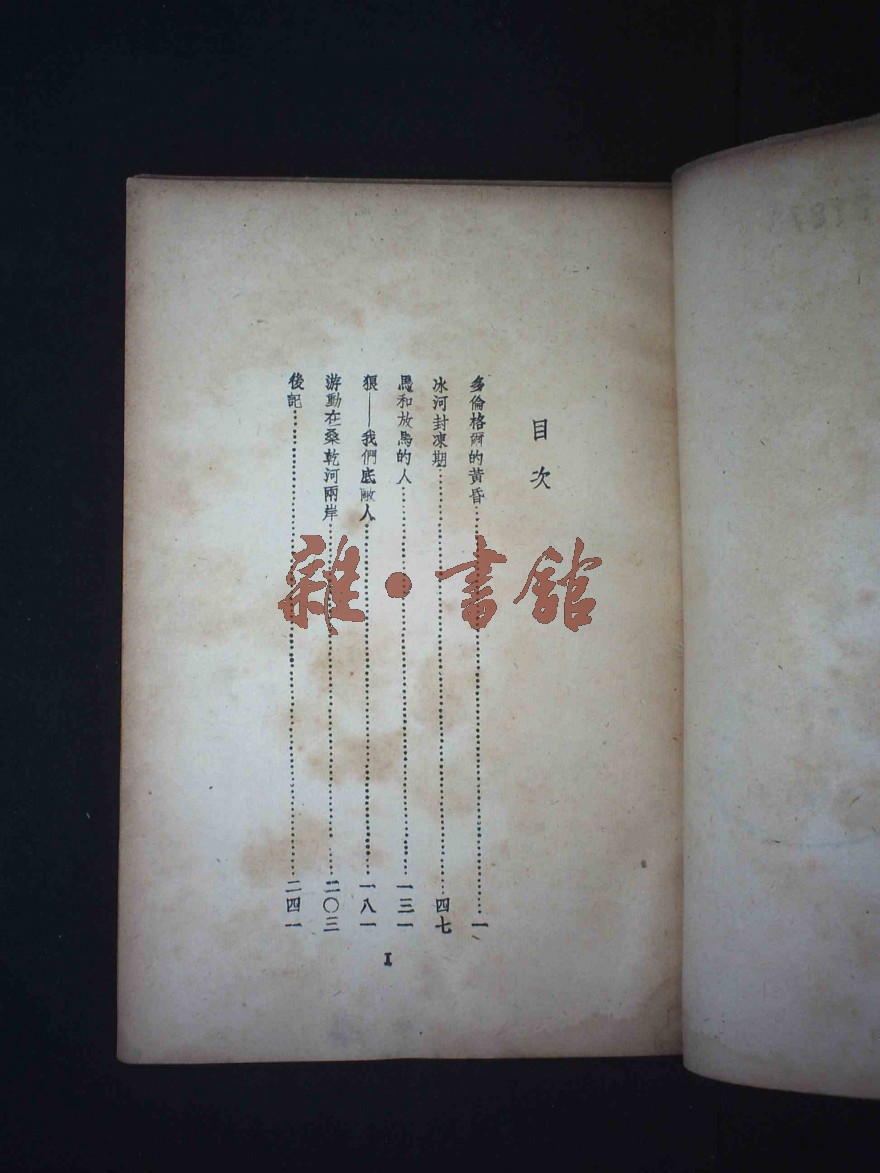 目次
多倫格爾的黃昏……一
冰河封凍期……四七
馬和放馬的人……一三一
狼——我們底敵人……一八一
游動在桑乾河兩岸……二〇三
後記……二四一
I
雜·書館